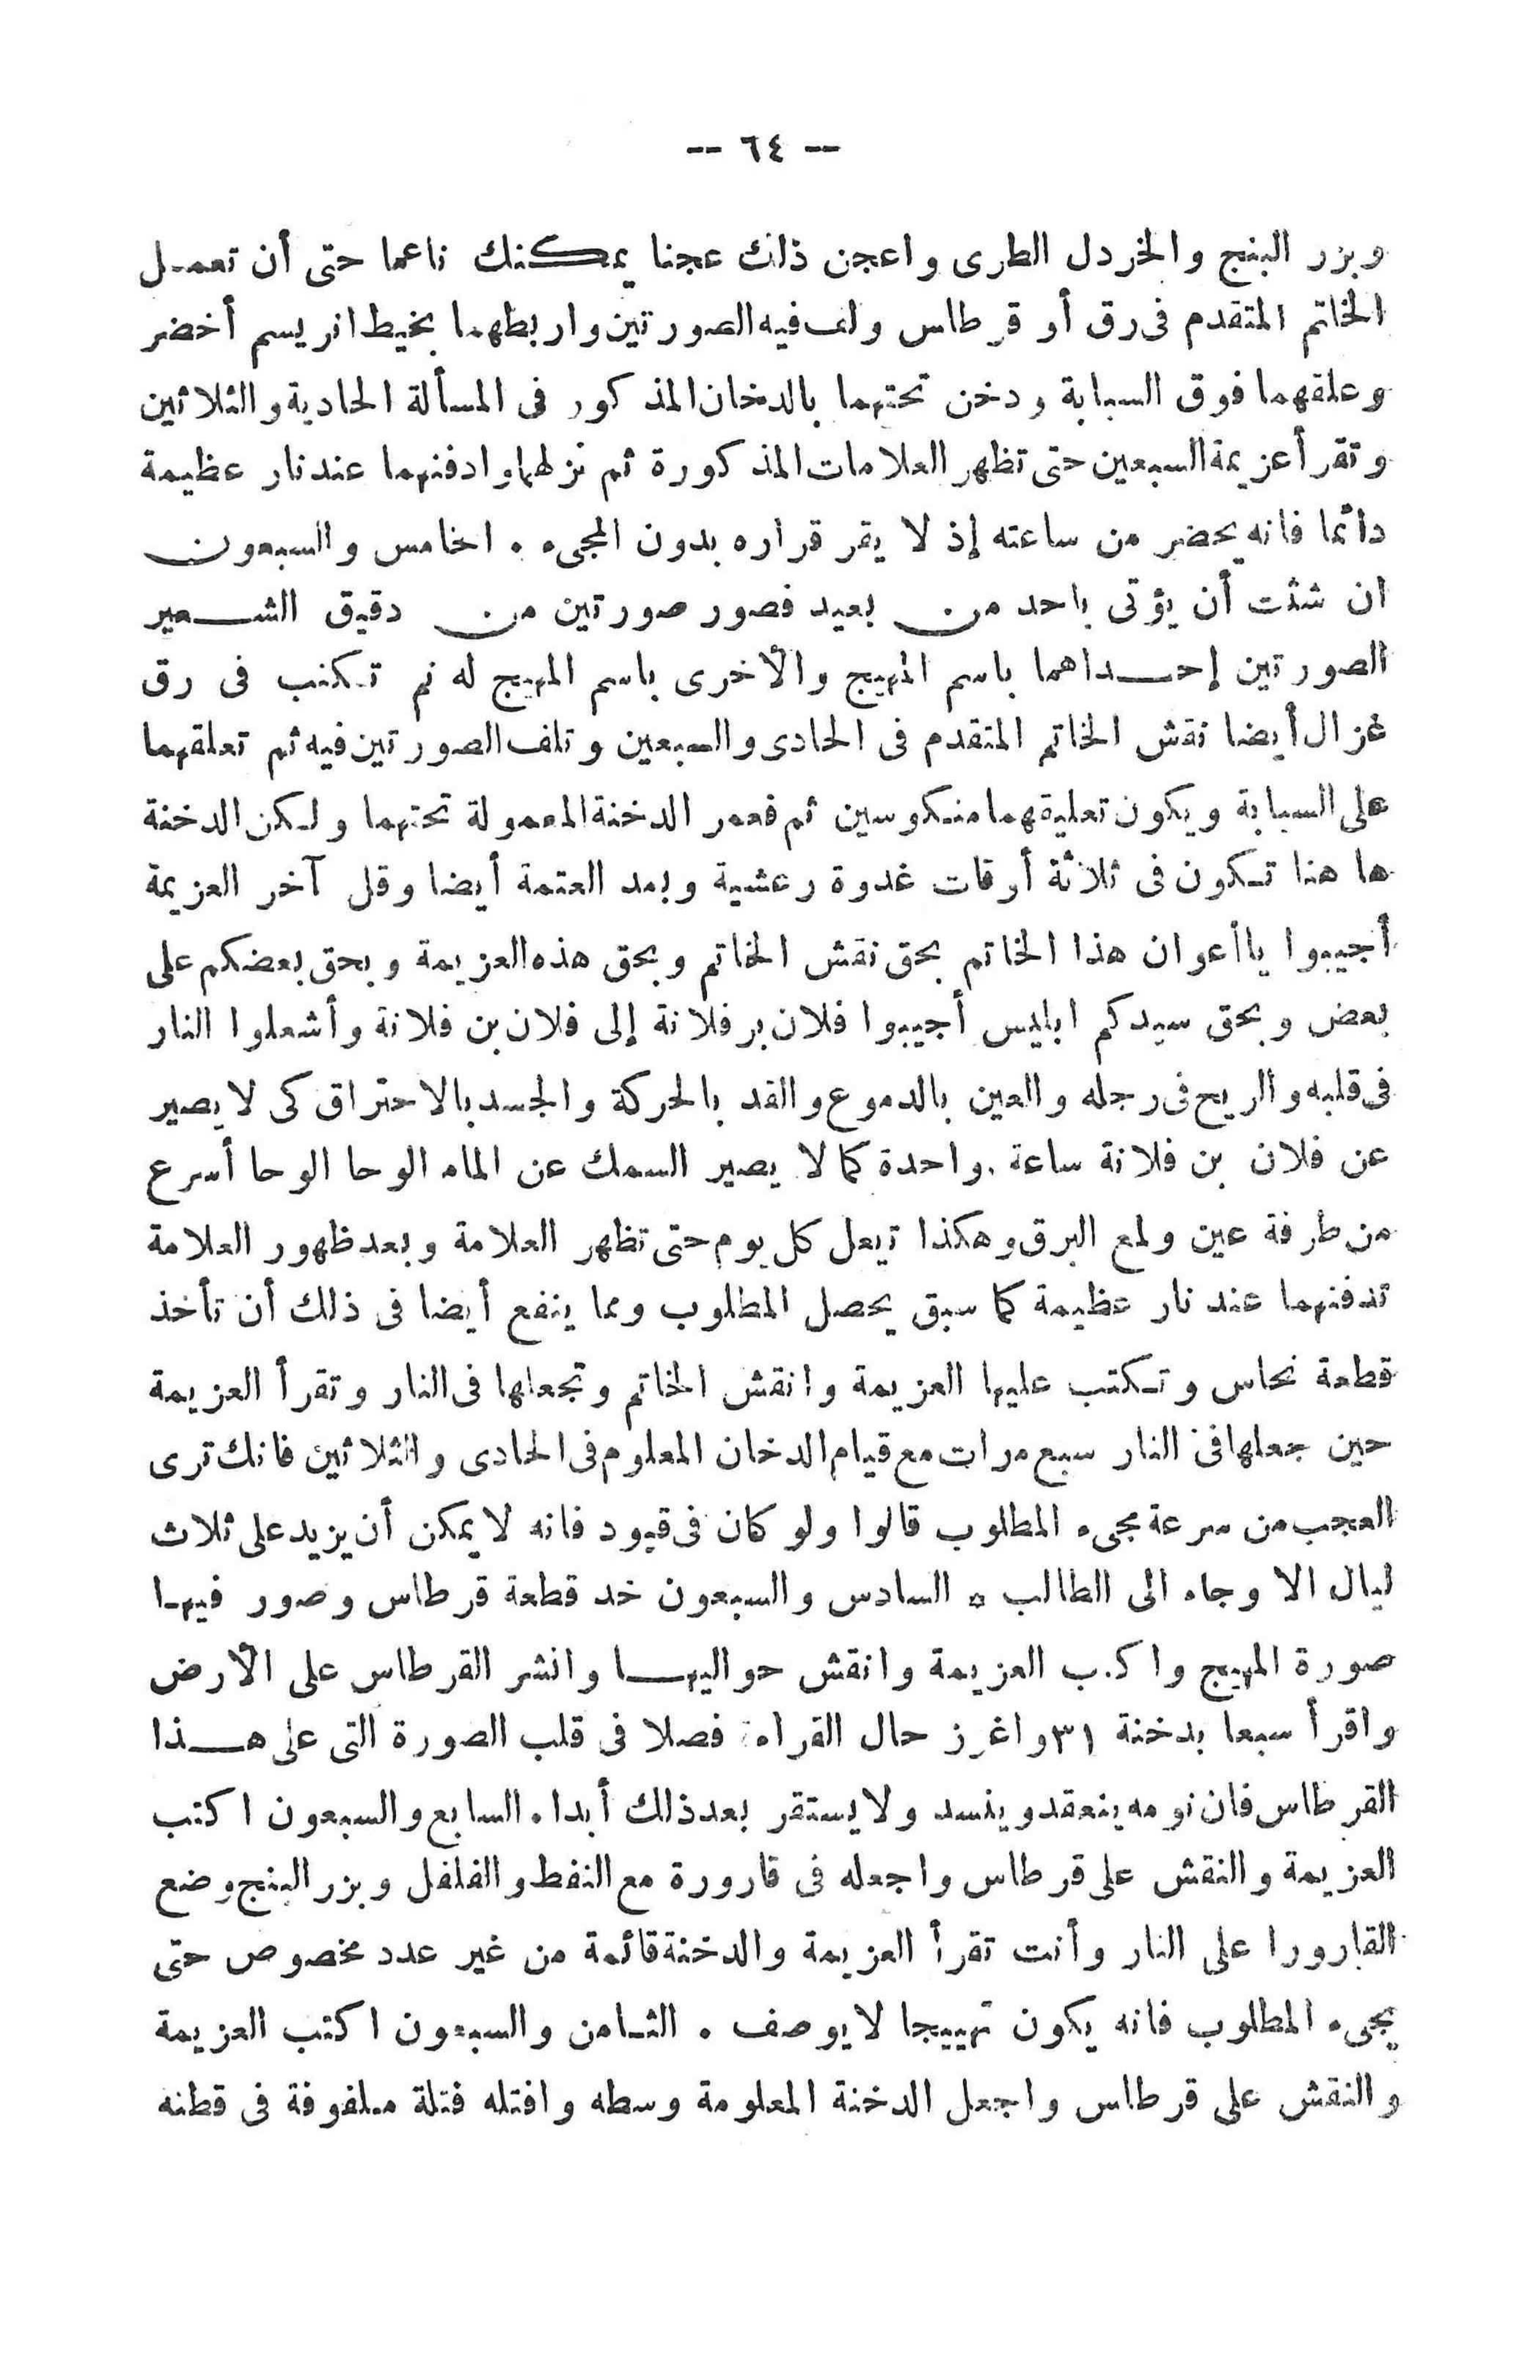 -- ٦٤ --
وبزر البنج والخردل الطرى واعجن ذلك عجنا يمكنك ناعما حتى أن تعمل
الخاتم المتقدم فى رق أو قرطاس ولف فيه الصورتين واربطهما بخيط ابريسم أخضر
وعلقهما فوق السبابة ودخن تحتهما بالدخان المذكور فى المسألة الحادية والثلاثين
وتقرأ عزيمة السبعين حتى تظهر العلامات المذكورة ثم نزلهما وادفنهما عند نار عظيمة
دائما فانه يحضر من ساعته إذ لا يقر قراره بدون المجىء . الخامس والسبعون
ان شئت أن يؤتى باحد من بعيد فصور صورتين من دقيق الشعير
الصورتين إحداهما باسم المهيج والأخرى باسم المهيج له ثم تكتب فى رق
غزال أيضا نقش الخاتم المتقدم فى الحادى والسبعين وتلف الصورتين فيه ثم تعلقهما
على السبابة ويكون تعليقهما منكوسين ثم فعمر الدخنة المعمولة تحتهما ولكن الدخنة
ها هنا تكون فى ثلاثة أوقات غدوة وعشية وبعد العتمة أيضا وقل آخر العزيمة
أجيبوا ياأعوان هذا الخاتم بحق نقش الخاتم وبحق هذه العزيمة وبحق بعضكم على
بعض وبحق سيدكم ابليس أجيبوا فلان بر فلانة إلى فلان بن فلانة وأشعلوا النار
فى قلبه والريح فى رجله والعين بالدموع والقد بالحركة والجسد بالاحتراق كى لا يصير
عن فلان بن فلانة ساعة واحدة كما لا يصير السمك عن الماء الوحا الوحا أسرع
من طرفة عين ولمع البرق وهكذا تيعل كل يوم حتى تظهر العلامة وبعد ظهور العلامة
تدفنهما عند نار عظيمة كما سبق يحصل المطلوب ومما ينفع أيضا فى ذلك أن تأخذ
قطعة نحاس وتكتب عليها العزيمة وانقش الخاتم وتجعلها فى النار وتقرأ العزيمة
حين جعلها فى النار سبع مرات مع قيام الدخان المعلوم فى الحادى والثلاثين فانك ترى
العجب من سرعة مجىء المطلوب قالوا ولو كان فى قيود فانه لا يمكن أن يزيد على ثلاث
ليال الا وجاء الى الطالب * السادس والسبعون خد قطعة قرطاس وصور فيها
صورة المهيج واكتب العزيمة وانقش حواليها وانشر القرطاس على الأرض
واقرأ سبعا بدخنة ٣١ واغرز حال القراءة فصلا فى قلب الصورة التى على هذا
القرطاس فان نومه ينعقد ويفسد ولا يستقر بعد ذلك أبدا . السابع والسبعون اكتب
العزيمة والنقش على قرطاس واجعله فى قارورة مع النفط والفلفل وبزر البنج وضع
القارورا على النار وأنت تقرأ العزيمة والدخنة قائمة من غير عدد مخصوص حتى
يجىء المطلوب فانه يكون تهييجا لا يوصف . الثامن والسبعون اكتب العزيمة
والنقش على قرطاس واجعل الدخنة المعلومة وسطه وافتله فتلة ملفوفة فى قطنه